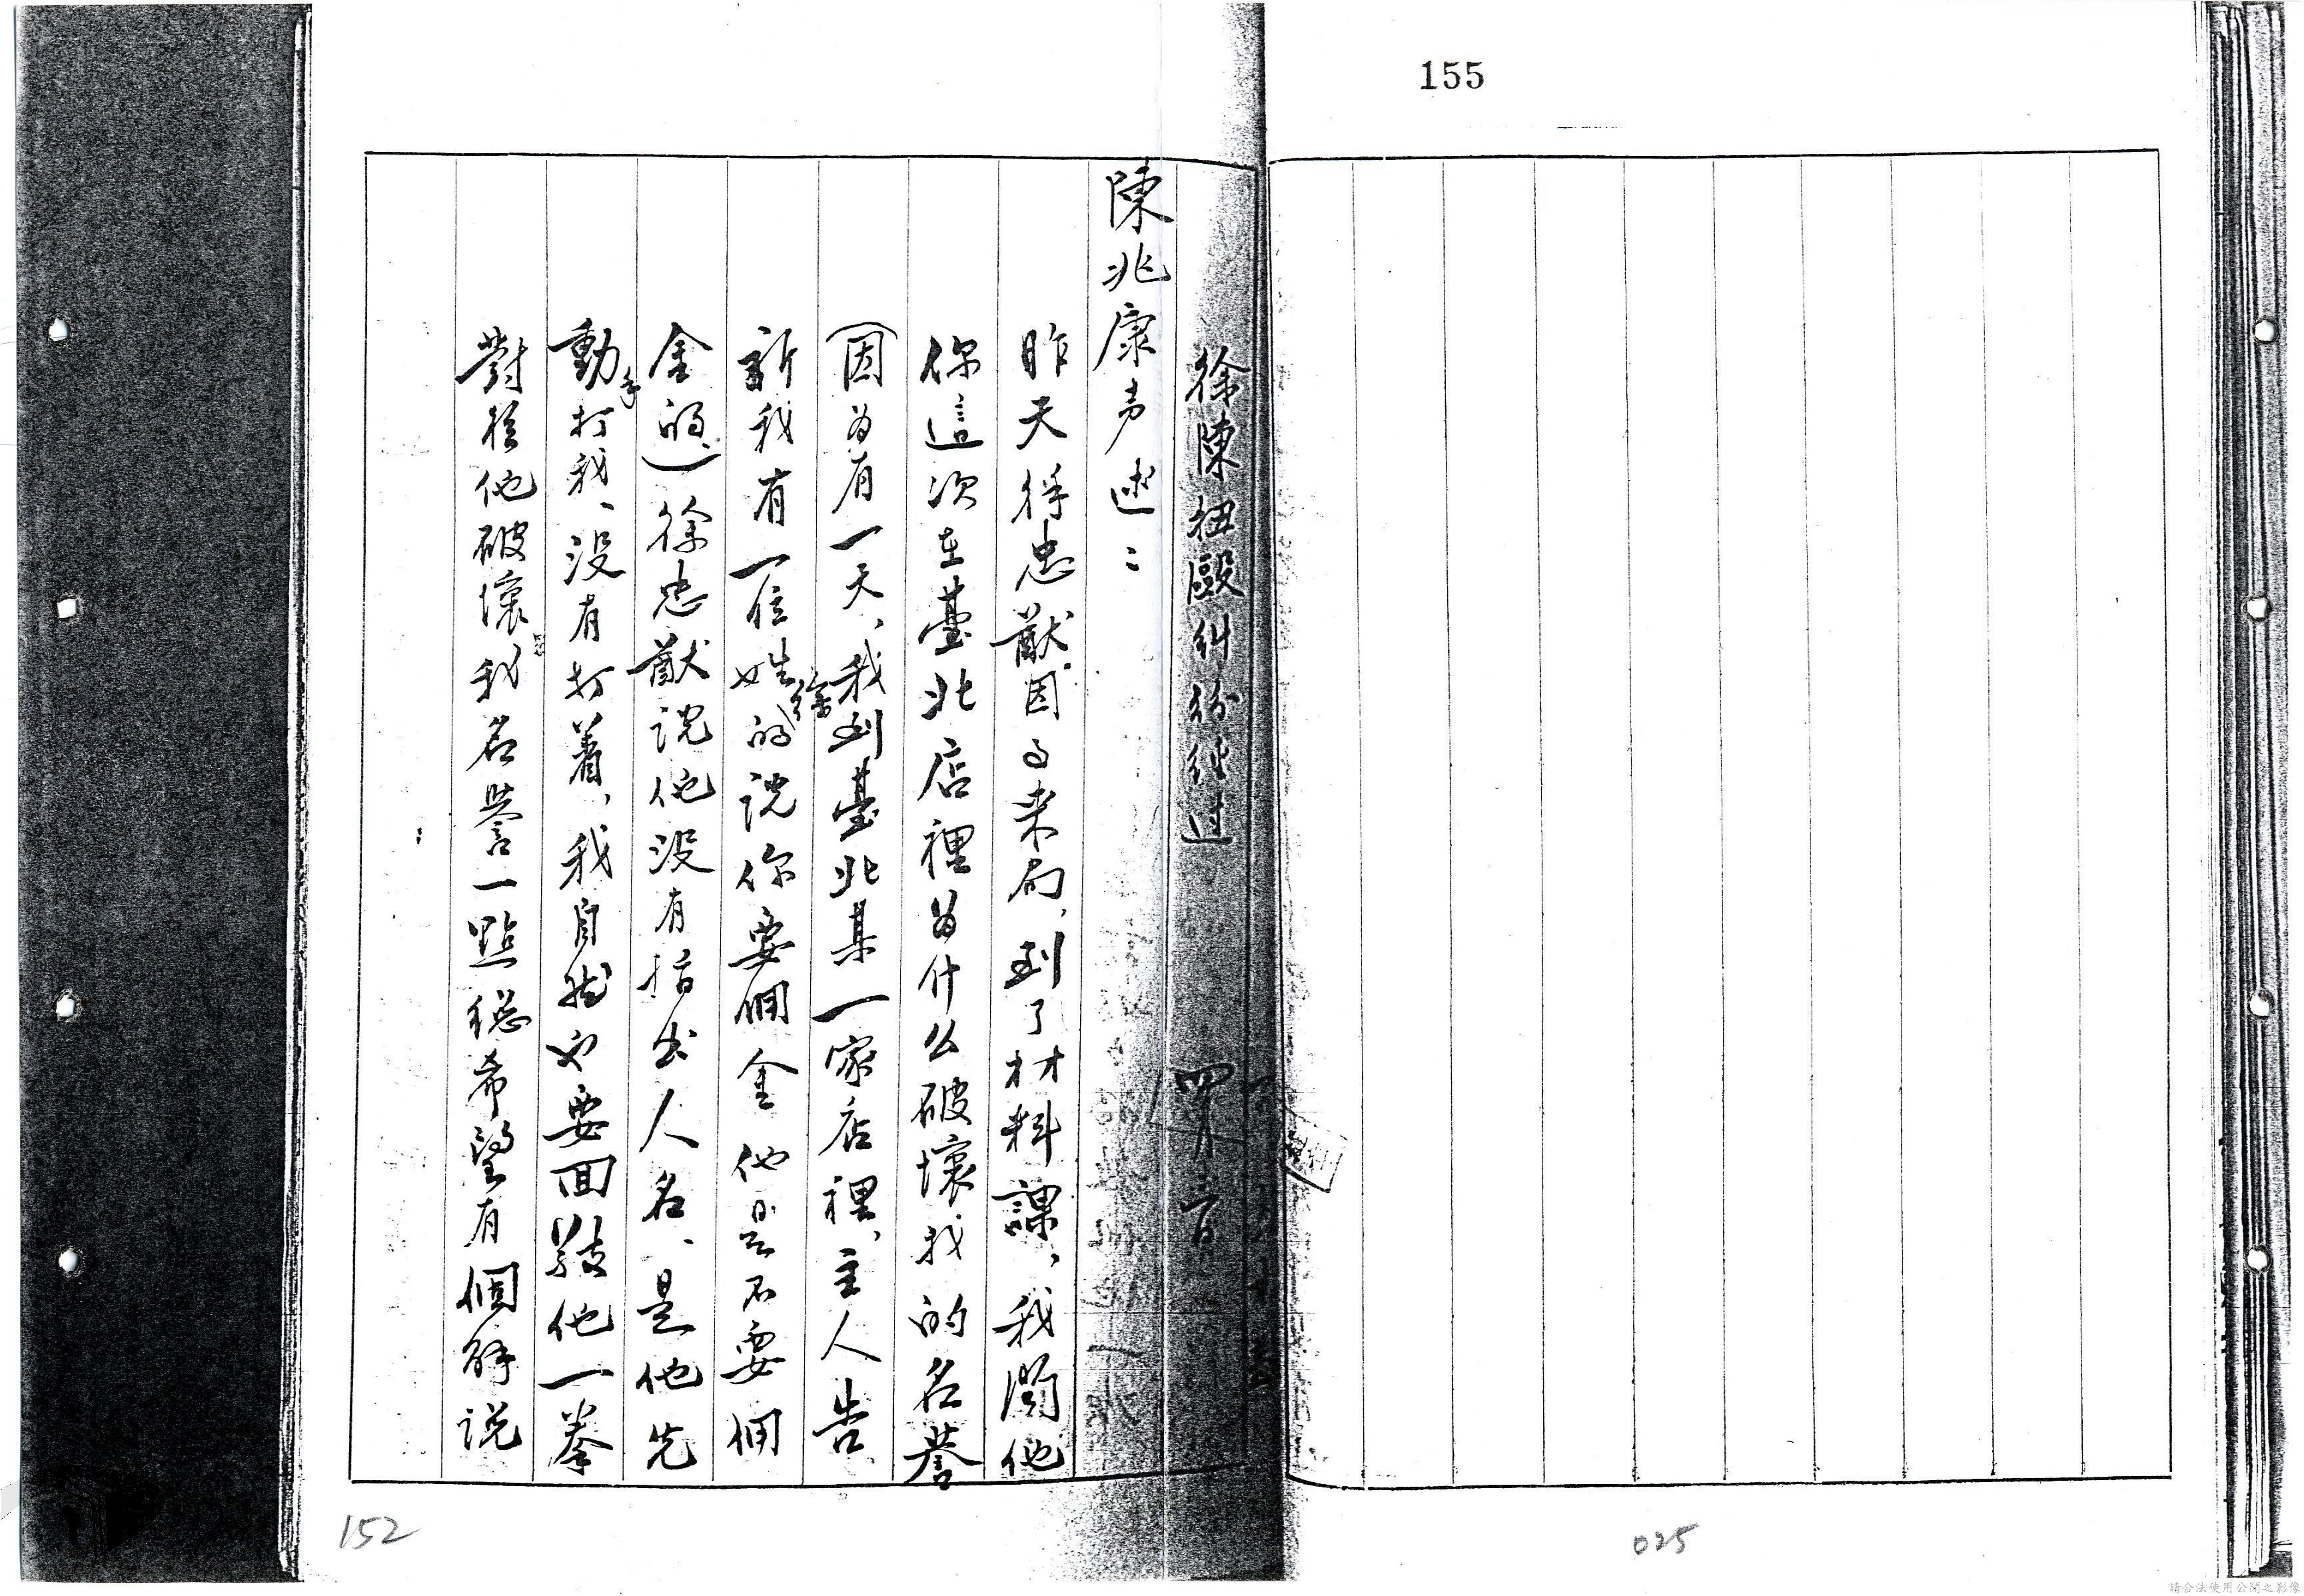 155
徐陳扭毆糾紛經过
四月三日
陳兆康声述：
昨天徐忠猷因事来局、到了材料課、我問他
你這次在臺北店裡為什么破壞我的名譽
（因为有一天、我到臺北某一家店裡、主人告
訴我有一位姓徐的説你要佣金他是不要佣
金的、）徐忠猷説他没有指出人名、是他先
動手打我、没有打着、我自然也要回敬他一拳
對於他破壞我名譽一點總希望有個解説
152
025
請合法使用公開之影像